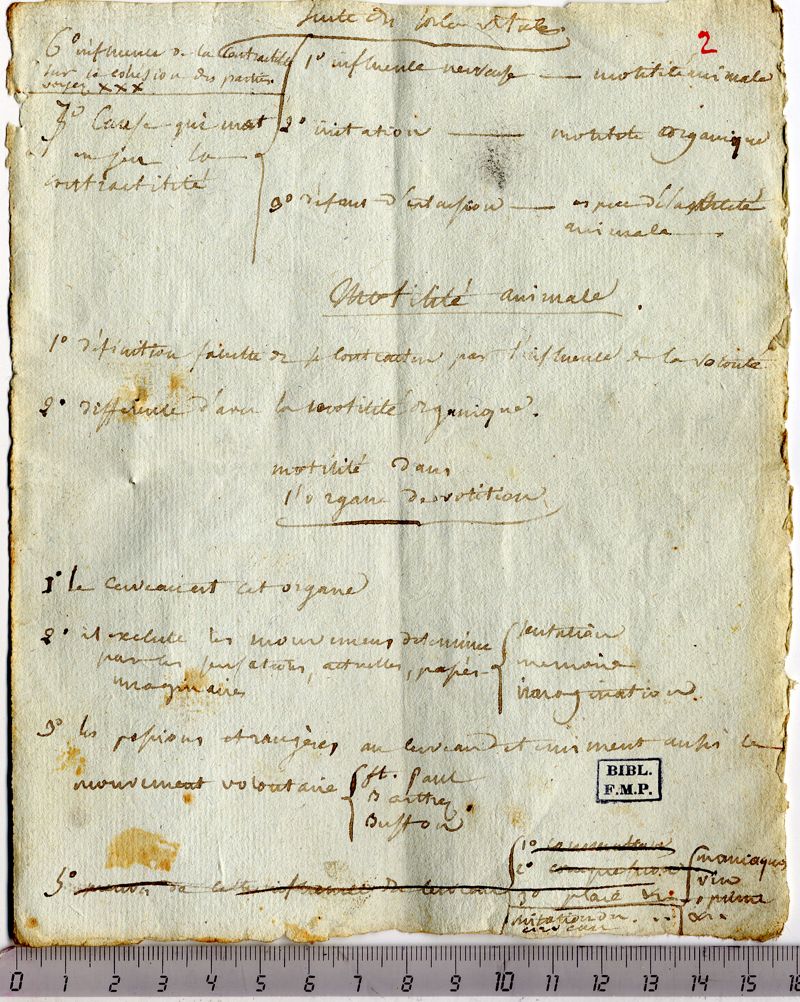 Suite des forces vitales
2
6° influence de la contractilité
sur la cohesion des parties
voyez xxx
7° Cause qui met
en jeu la
contractilité
1° influence nerveuse — motilité animale
2° irritation — motilité organique
3° défaut d'extension — espece d'élasticité
animale
Motilité animale.
1° définition faculté de se contracter par l'influence de la volonté
2° difference d'avec la motilité organique.
motilité dans
l'organe de volition
1° le cerveau est cet organe
2° il execute les mouvemens determiné
par les sensations, actuelles, passés
imaginaires
sensation
memoire
imagination
3° les passions etrangères au cerveau determinent aussi le
mouvement volontaire
St. Paul
Barthez
Buffon
BIBL.
F.M.P.
5° preuves de cette influence du cerveau
1°
2° compression
3° plaie &c.
irritation du
cerveau
maniaques
vin
opium
&c.
0 1 2 3 4 5 6 7 8 9 10 11 12 13 14 15 16